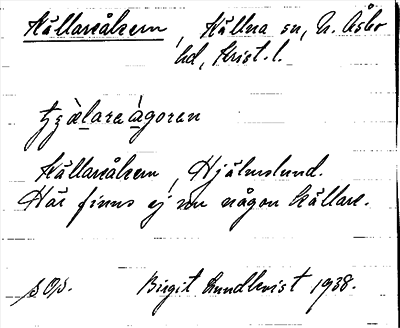 Källareåkern, Källna sn, N. Åsbo
hd, Krist. l.
Källareåkern, Hjälmslund.
Här finns ej nu någon källare.
Birgit Lundkvist 1938.